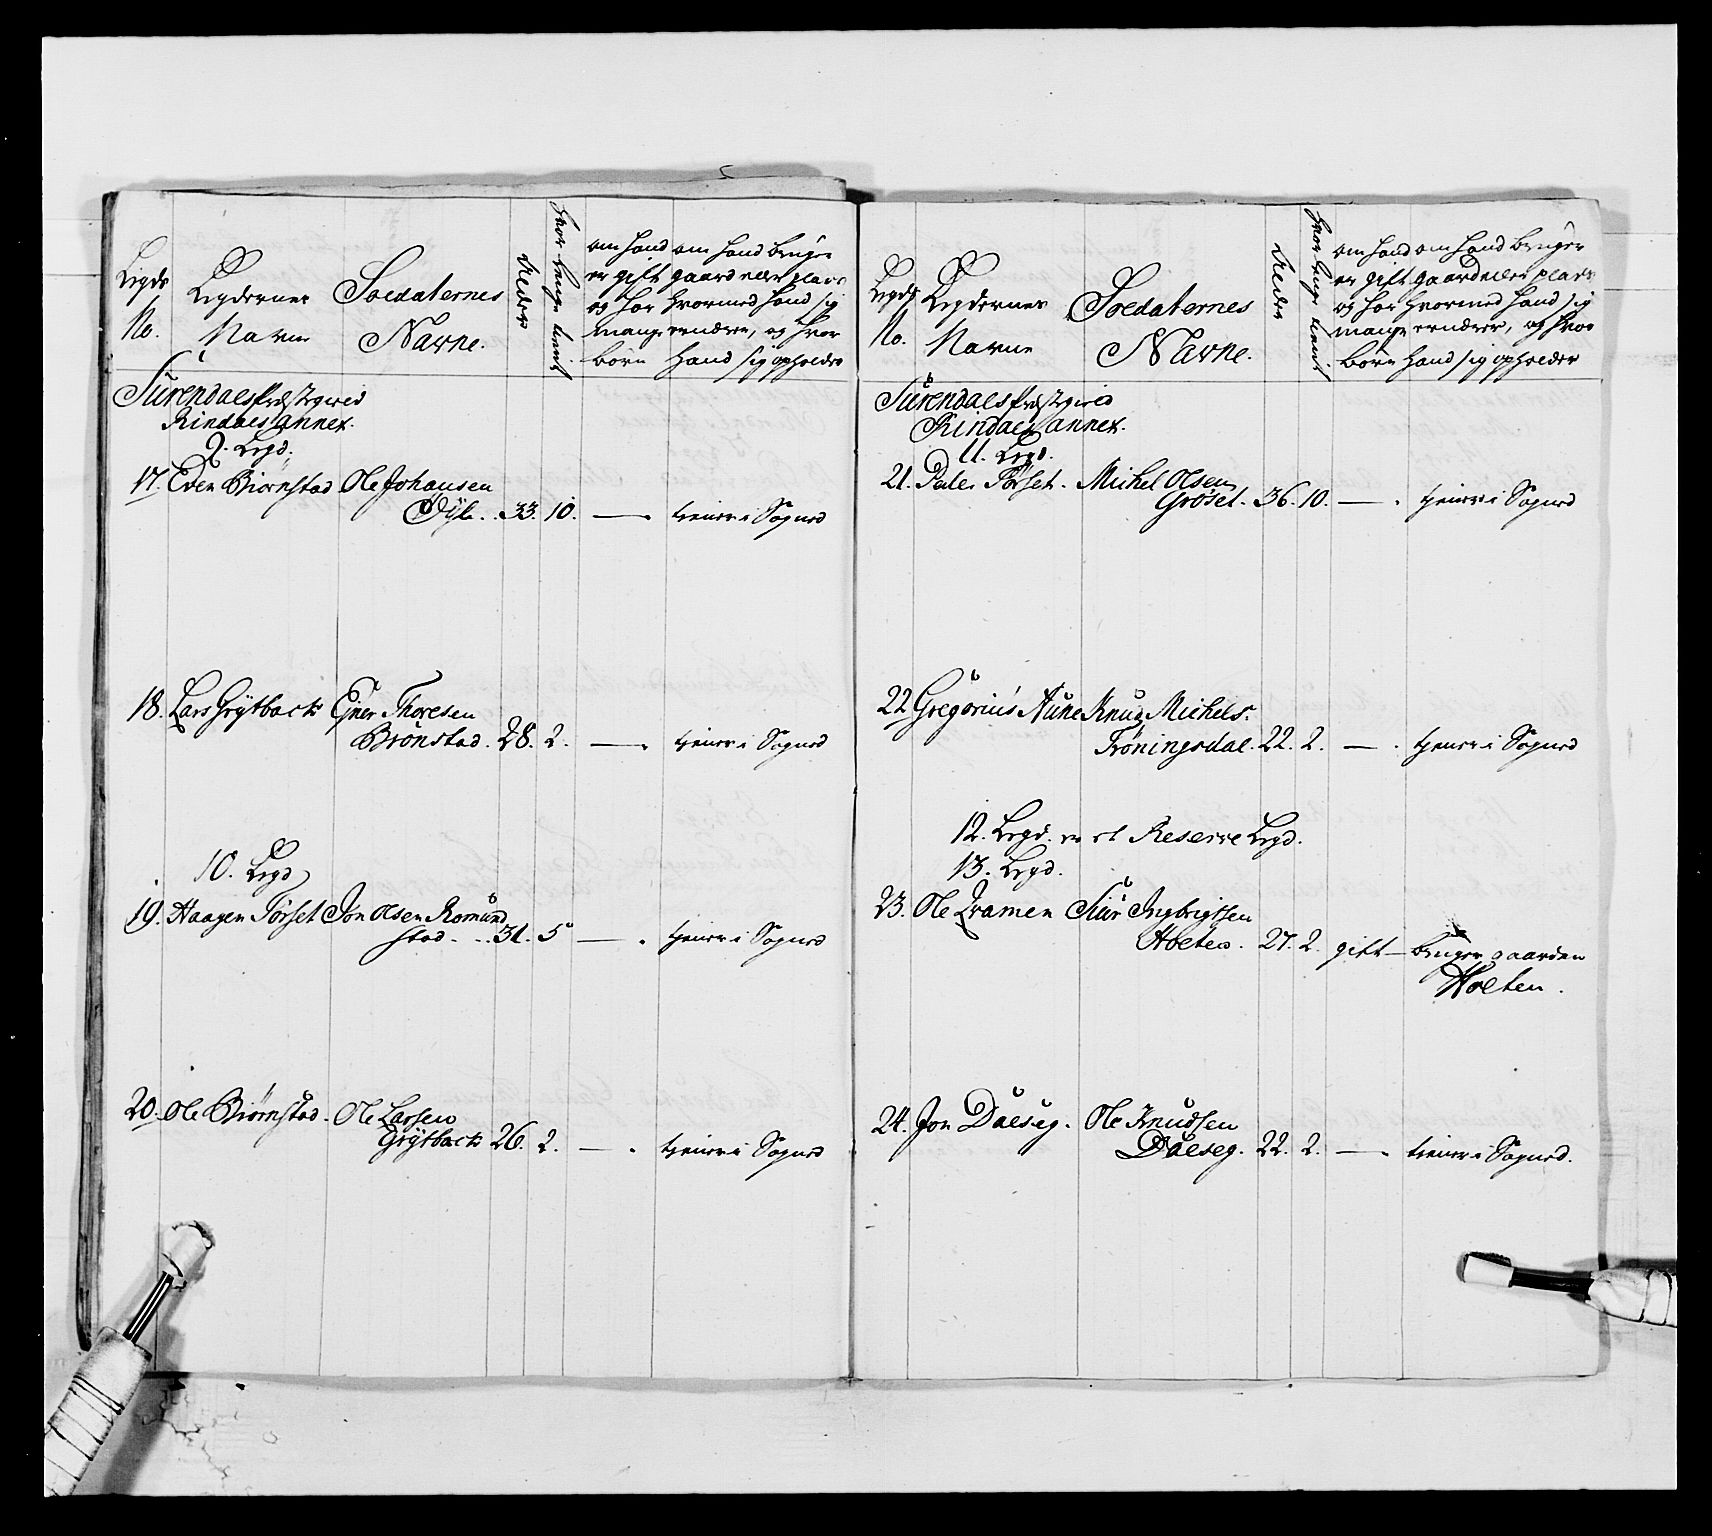 Legds No.
Legdernes Navne
Soldaternes Navne.
Alder
hvor lenge tient
om hand er gift og har mange børn
om hand bruger gaard eller plads hvormed hand sig ernærer, og hvor hand sig opholder
Surendals Præstegield
Rindals annex.
9. Legd.
17. Even Biørnstad Ole Johansen
Dÿl. . 33. 10. — . tiener i Sognet
18. Lars Grÿtback Ejner Thoresen
Brønstad. 28. 2. — . tiener i Sognet
10. Legd
19. Haagen Tørset Jon Olsen Romund
stad. . . 31. 5 — . tiener i Sognet
20. Ole Biørnstad. Ole Larsen
Grÿtback 26. 2. — . tiener i Sognet
Legds No.
Legdernes Navne
Soldaternes Navne.
Alder
hvor lenge tient
om hand er gift og har mange børn
om hand bruger gaard eller plads hvormed hand sig ernærer, og hvor hand sig opholder
Surendals Præstegield
Rindals annex.
11. Legd.
21. Peder Tørset. Michel Olsen
Grøset. 36. 10. — . tiener i Sognet
22 Gregorius Aune Knud Michels.
Trøningsdal. 22. 2. — . tiener i Sognet
12. Legd. er et Reserve Legd.
13. Legd.
23. Ole Qvamen Siur Ingbrigtsen
Holten. 27. 2. gift — bruger gaarden
Holten.
24. Jon Dalseg. Ole Knudsen
Dalseg. 22. 2. — . tiener i Sognet.